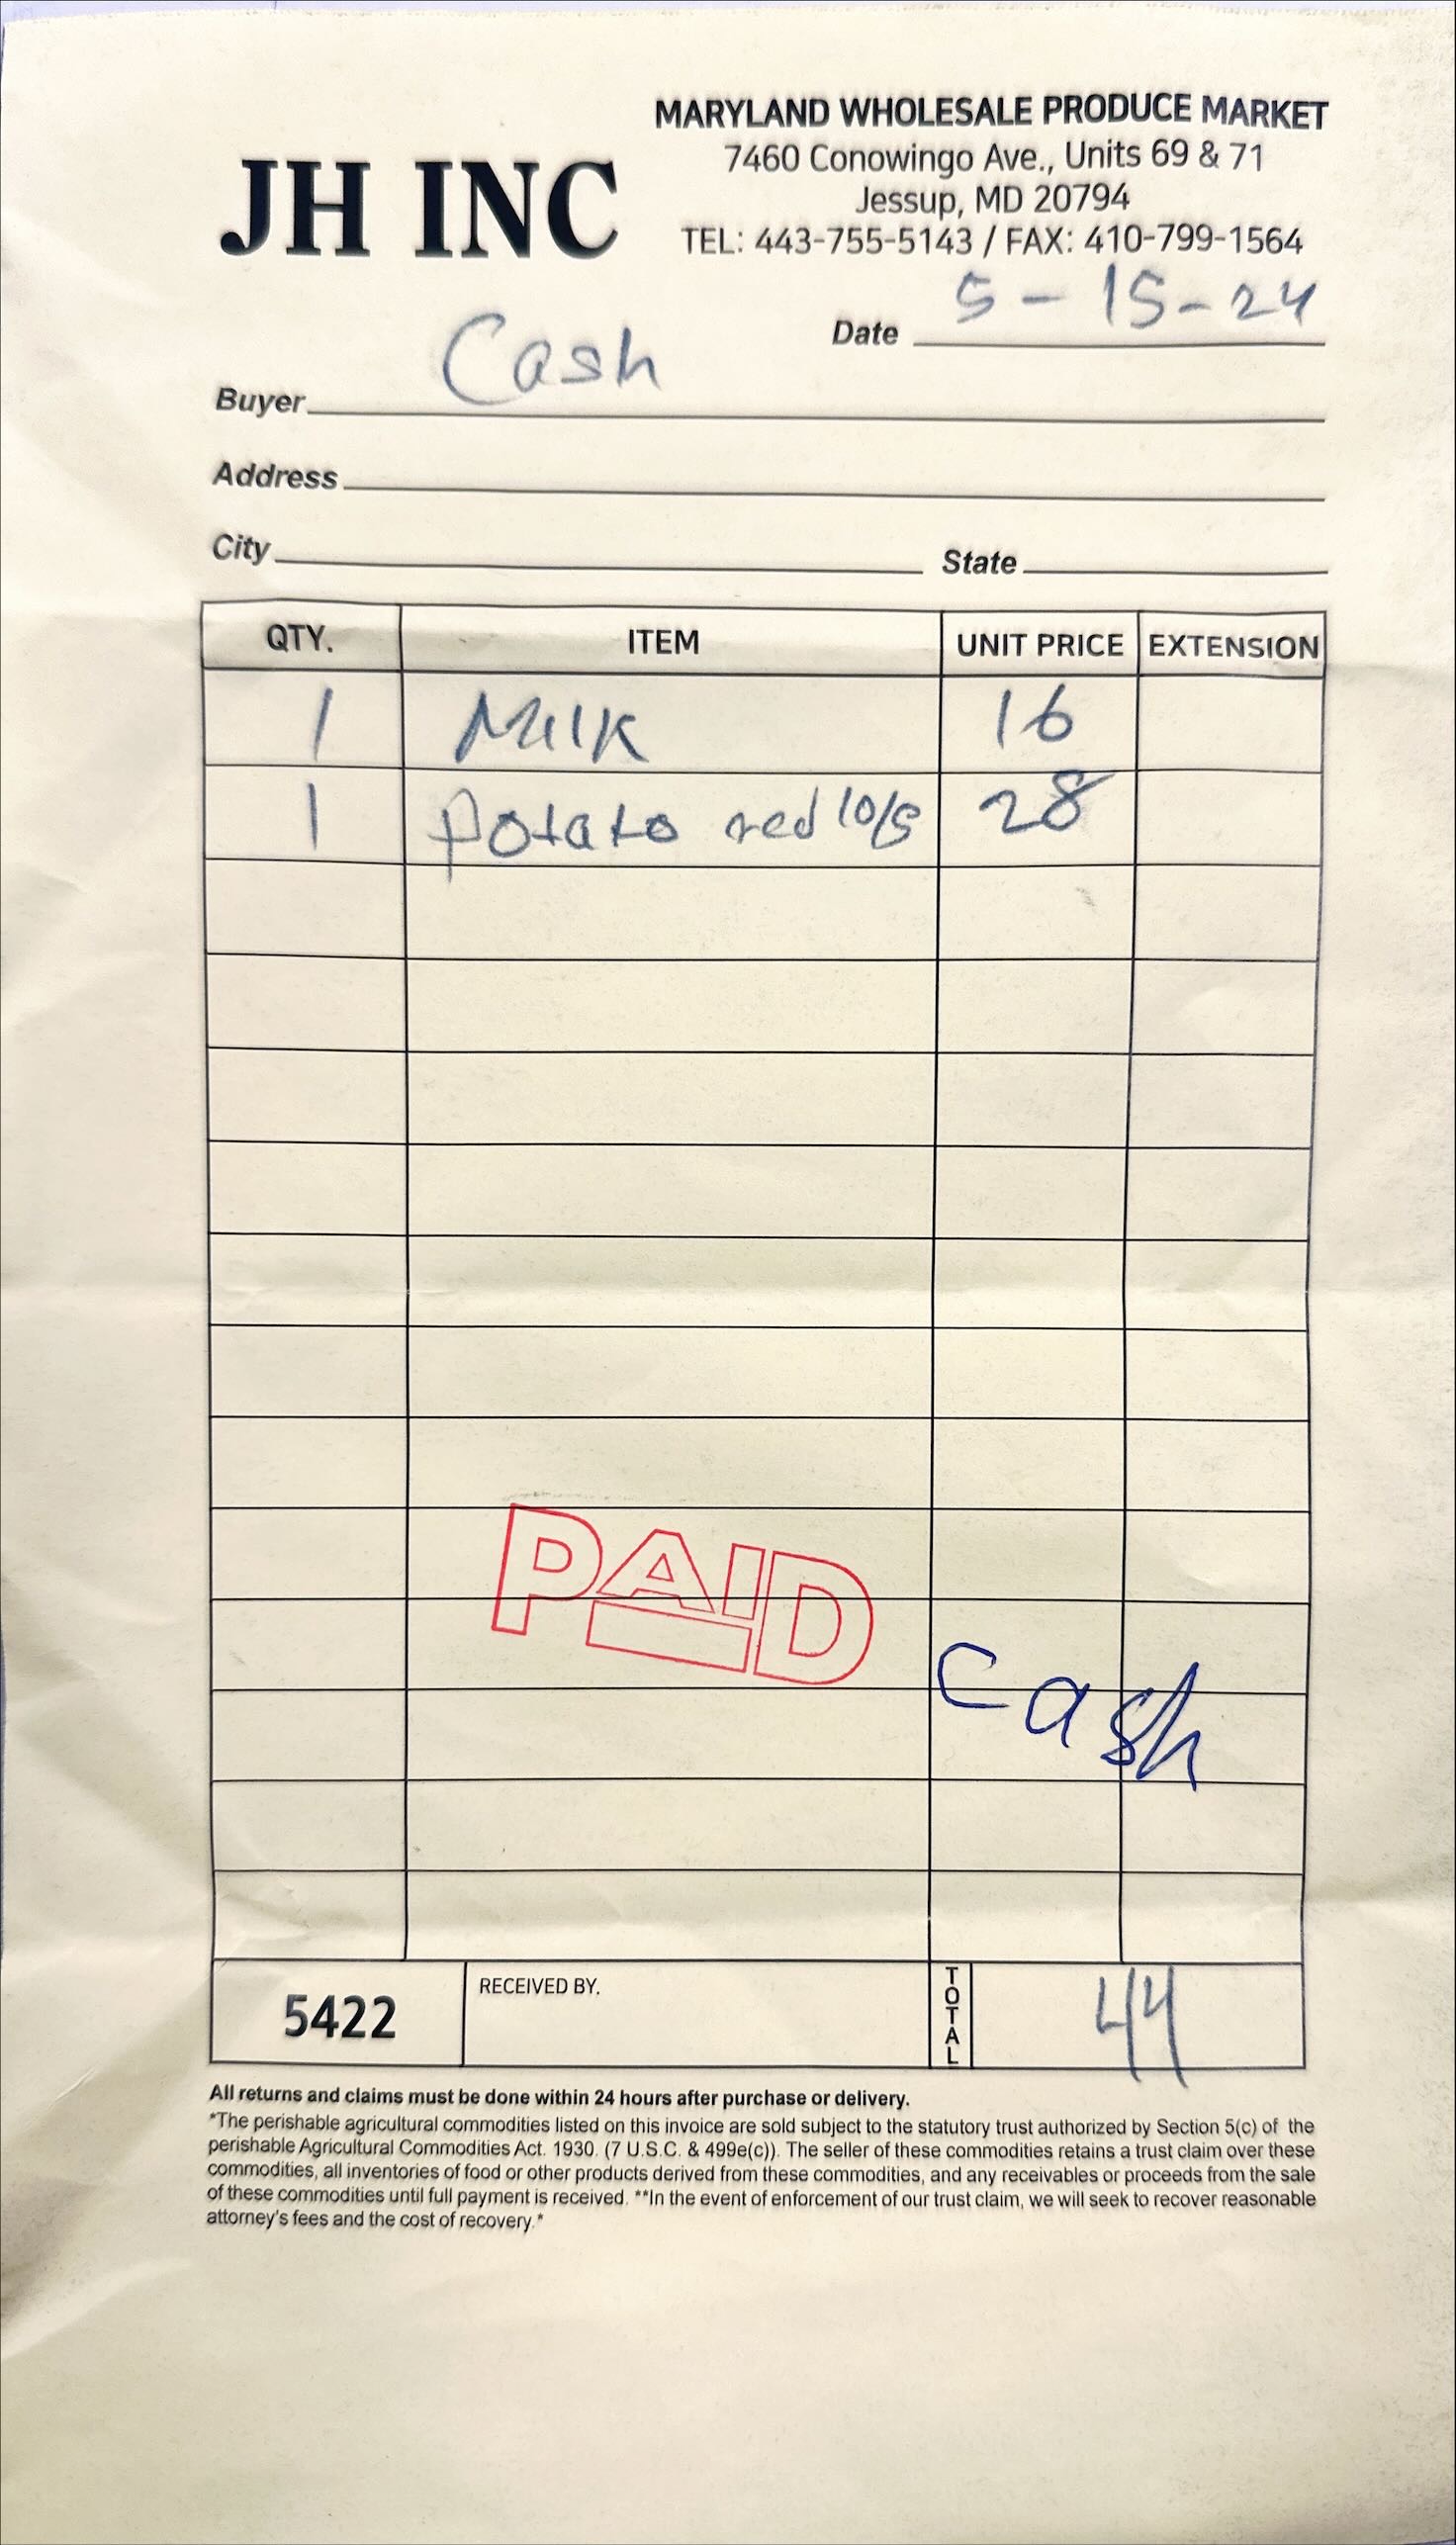 MARYLAND WHOLESALE PRODUCE MARKET
JH INC
7460 Conowingo Ave., Units 69 & 71
Jessup, MD 20794
TEL: 443-755-5143 / FAX: 410-799-1564
Date 5-15-24
Buyer Cash
Address
City State
QTY. ITEM UNIT PRICE EXTENSION
1 Milk 16
1 Potato red 10/5 28
PAID
Cash
5422 RECEIVED BY. TOTAL 44
All returns and claims must be done within 24 hours after purchase or delivery.
*The perishable agricultural commodities listed on this invoice are sold subject to the statutory trust authorized by Section 5(c) of the
perishable Agricultural Commodities Act. 1930. (7 U.S.C. & 499e(c)). The seller of these commodities retains a trust claim over these
commodities, all inventories of food or other products derived from these commodities, and any receivables or proceeds from the sale
of these commodities until full payment is received. **In the event of enforcement of our trust claim, we will seek to recover reasonable
attorney's fees and the cost of recovery.*